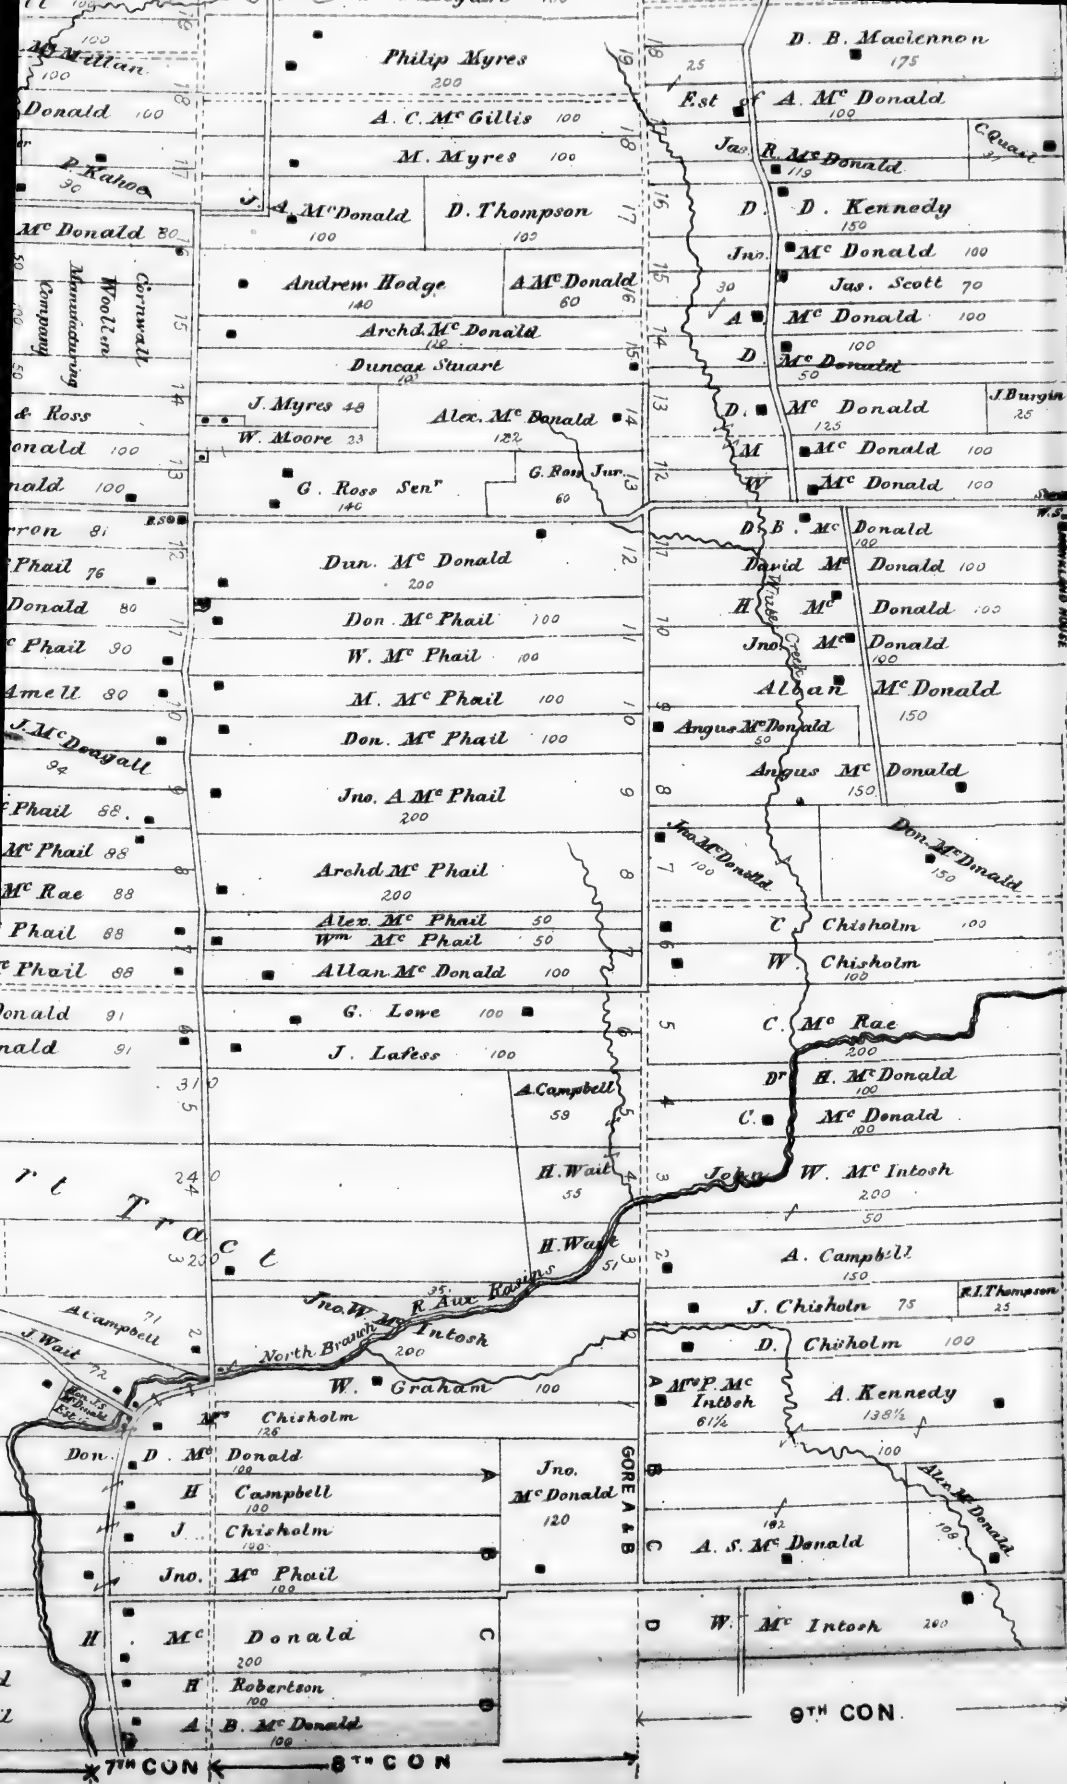 Mc Millan
100
100
Donald 100
P. Kahoe
90
Mc Donald 80
Cornwall
Woollen
Manufacturing
Company
& Ross
onald 100
nald 100
rron 81
Phail 76
Donald 80
Phail 90
Amell 80
J. McDougall
94
Phail 88.
Mc Phail 88
Mc Rae 88
Phail 88
Phail 88
Donald 91
nald 91
310
5
240
4
230
3
rt Tract
A. Campbell 71
J. Wait 72
2
Philip Myres
200
A. C. Mc Gillis 100
M. Myres 100
J. A. McDonald
100
D. Thompson
100
Andrew Hodge
140
A McDonald
60
Archd. Mc Donald
120
Duncan Stuart
100
J. Myres 48
W. Moore 23
Alex. Mc Donald
122
G. Ross Senr
140
G. Ross Jur.
60
B.S.
Dun. Mc Donald
200
Don. Mc Phail 100
W. Mc Phail 100
M. Mc Phail 100
Don. Mc Phail 100
Jno. A Mc Phail
200
Archd Mc Phail
200
Alex. Mc Phail 50
Wm Mc Phail 50
Allan Mc Donald 100
G. Lowe 100
J. Lafess 100
A. Campbell
59
H. Wait
55
H. Wait
51
Jno. W. Mc Intosh
200
35.
North Branch R. Aux Rasins
W. Graham 100
Mrs Chisholm
126
Don. D. Mc Donald
100
H Campbell
100
J Chisholm
100
Jno. Mc Phail
100
H. Mc Donald
200
H Robertson
100
A B. Mc Donald
100
Jno.
McDonald
120
A
B
C
D
GORE A & B
19
18
17
16
15
14
13
12
11
10
9
8
7
6
5
4
3
2
D. B. Maclennon
175
25
Est of A. Mc Donald
100
Jas. R. Mc Donald
119
C. Quail
31
D. D. Kennedy
150
Jno. Mc Donald 100
30
Jas. Scott 70
A Mc Donald 100
D. Mc Donald
100
50
D. Mc Donald
125
J. Burgin
25
M Mc Donald 100
W Mc Donald 100
D. B. Mc Donald
100
David Mc Donald 100
H Mc Donald 100
Jno. Mc Donald
100
Allan Mc Donald
150
Angus McDonald
50
Angus Mc Donald
150
Jno. McDonald
100
Don. McDonald
150
C Chisholm 100
W. Chisholm
100
C. Mc Rae
200
Dr H. McDonald
100
C. Mc Donald
100
John W. Mc Intosh
200
50
A. Campbill
150
J. Chisholn 75
R. I. Thompson
25
D. Chisholm 100
Mrs P. Mc
Intosh
61½
A. Kennedy
138½
100
Alex. McDonald
108
182
A. S. Mc Donald
W. Mc Intosh 200
18
17
16
15
14
13
12
11
10
9
8
7
6
5
4
3
2
1
A
B
C
D
7TH CON
8TH CON
9TH CON.